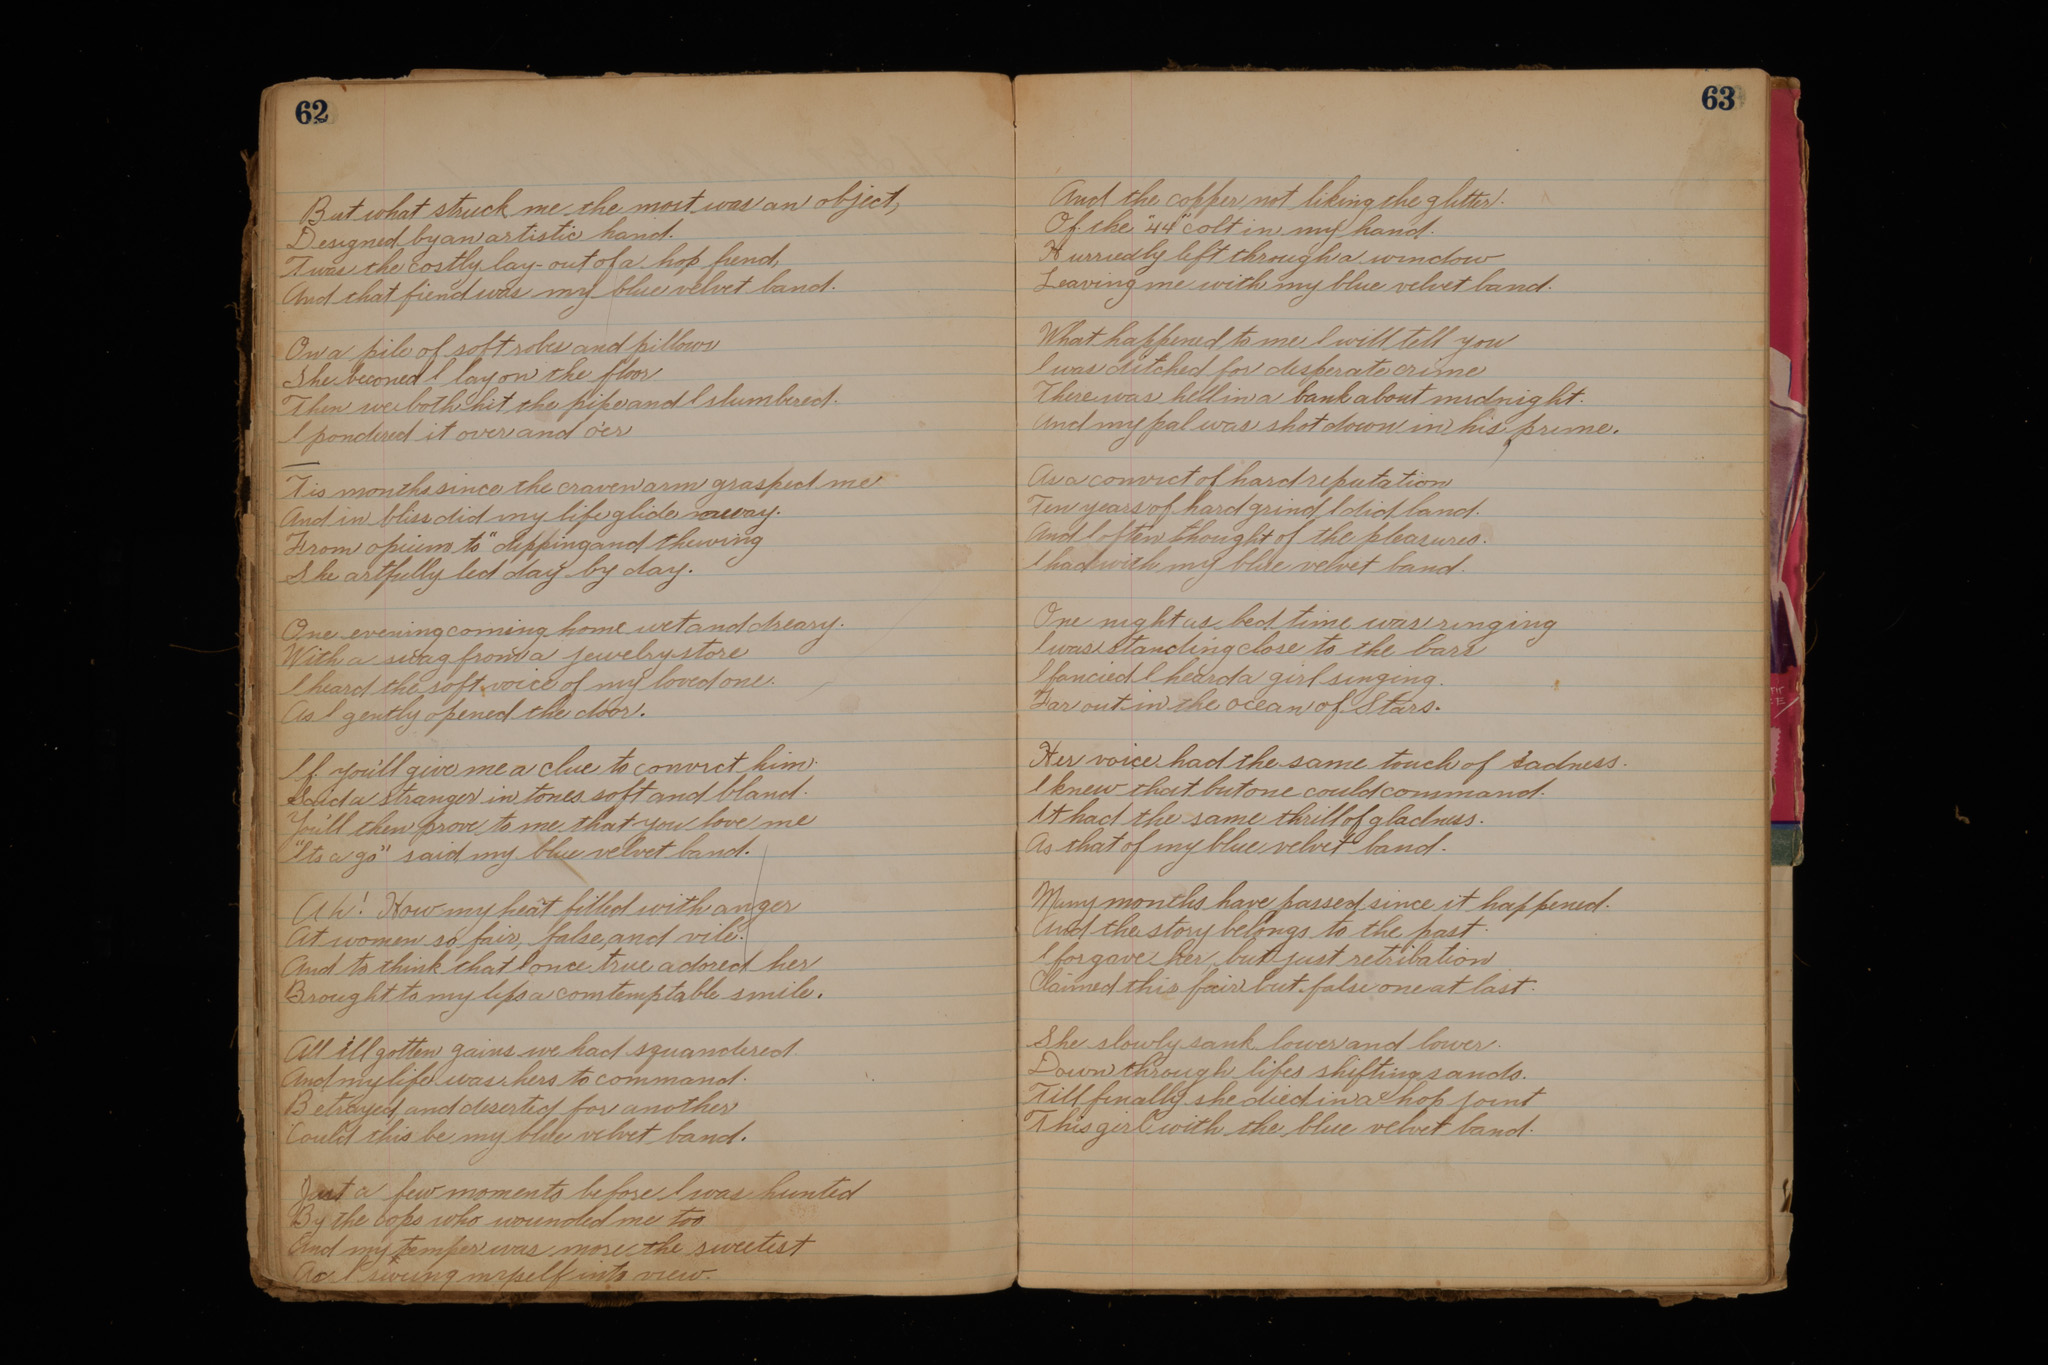 62
But what struck me the most was an object,
Designed by an artistic hand.
Twas the costly lay-out of a hop fiend,
And that fiend was my blue velvet band.
On a pile of soft robes and pillows
She beconed I lay on the floor
Then we both hit the pipe and I slumbered.
I pondered it over and o'er
Tis months since the craven arm grasped me
And in bliss did my life glide away.
From opium to "dipping and thieving
She artfully led day by day.
One evening coming home wet and dreary.
With a swag from a jewelry store
I heard the soft voice of my loved one.
As I gently opened the door.
If you'll give me a clue to convict him.
Said a stranger in tones soft and bland.
You'll then prove to me that you love me
"Its a go" said my blue velvet band.
Ah! How my heat filled with anger
At women so fair, false, and vile.
And to think that I once true adored her
Brought to my lips a comtemptable smile.
All ill gotten gains we had squandered
And my life was hers to command.
Betrayed, and deserted for another
Could this be my blue velvet band.
Just a few moments before I was hunted
By the cops who wounded me too
And my temper was more the sweetest
As I swung myself into view.
63
And the copper, not liking the glitter.
Of the "44" colt in my hand.
Hurriedly left through a window
Leaving me with my blue velvet band.
What happened to me I will tell you
I was ditched for desperate crime
There was hell in a bank about midnight.
And my pal was shot down in his prime.
As a convict of hard reputation
Ten years of hard grind I did land.
And I often thought of the pleasures.
I had with my blue velvet band.
One night as bed time was ringing
I was standing close to the bars
I fancied I heard a girl singing.
Far out in the ocean of Stars.
Her voice had the same touch of sadness.
I knew that but one could command.
It had the same thrill of gladness.
As that of my blue velvet band.
Many months have passed since it happened.
And the story belongs to the past.
I forgave her, but just retribation
Claimed this fair but false one at last.
She slowly sank lower and lower.
Down through lifes shifting sands.
Till finally she died in a hop joint
This girl with the blue velvet band.